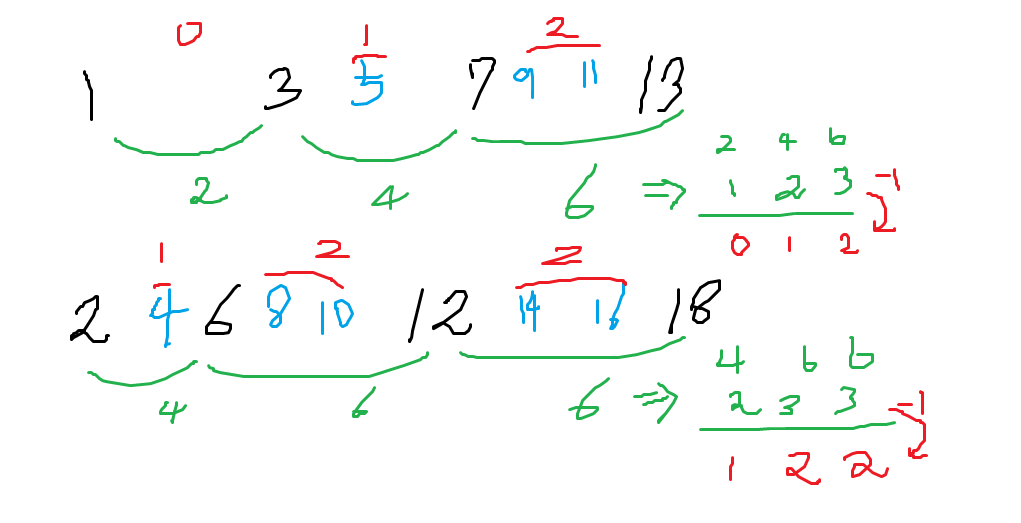 0 1 2
1 3 5 7 9 11 13
2 4 6
2 4 6 ⇒ 1 2 3 -1
0 1 2
1 2 2
2 4 6 8 10 12 14 16 18
4 6 6
4 6 6 ⇒ 2 3 3 -1
1 2 2